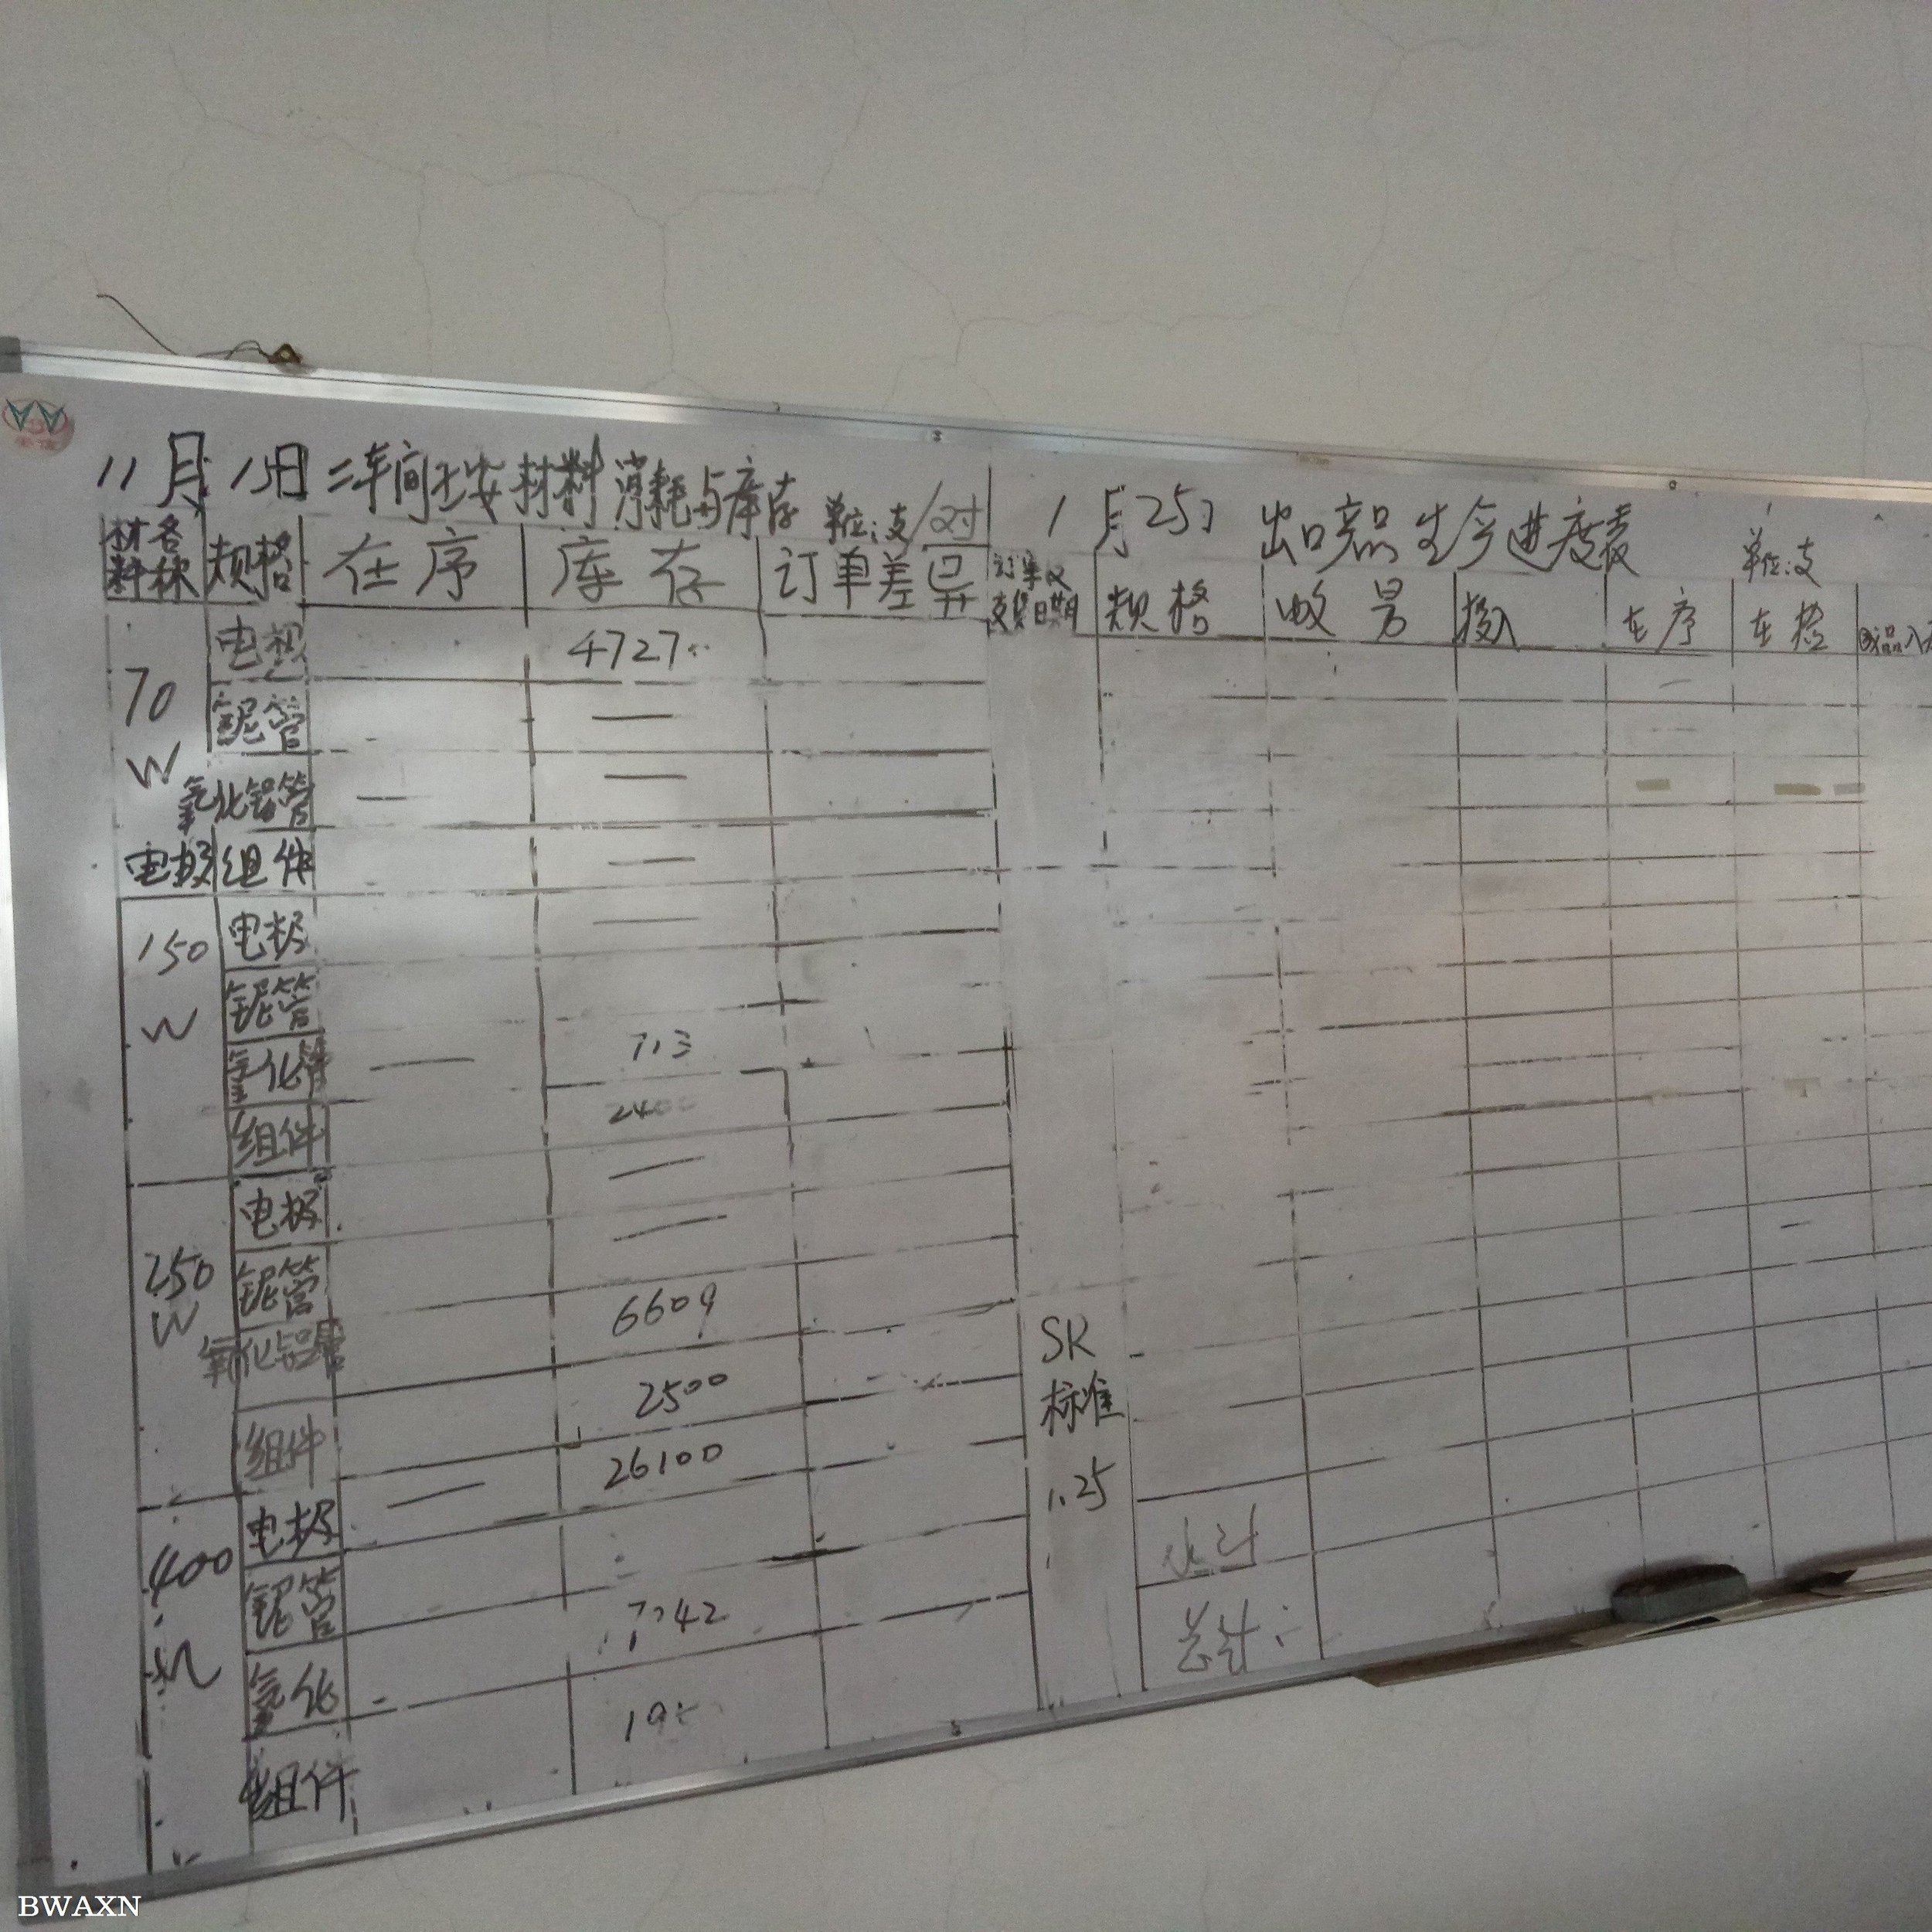 11月15日 二车间主要材料消耗与库存 单位:支/对
材料名称 规格 在序 库存 订单差异
70W 电极 4727
铌管 —
氧化铝管 — —
电极 组件 —
150W 电极 —
铌管
氧化管 — 713
组件 2400
250W 电极 —
铌管 —
氧化铝管 6609
组件 2500
400W 电极 — 26100
铌管
氧化 7242
组件
1月25日 出口产品生产进度表 单位:支
规格 数量 投入 在序 在检
SR
标准
1.25
小计
总计:
BWAXN